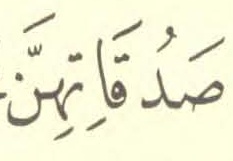 صَدُقَاتِهِنَّ